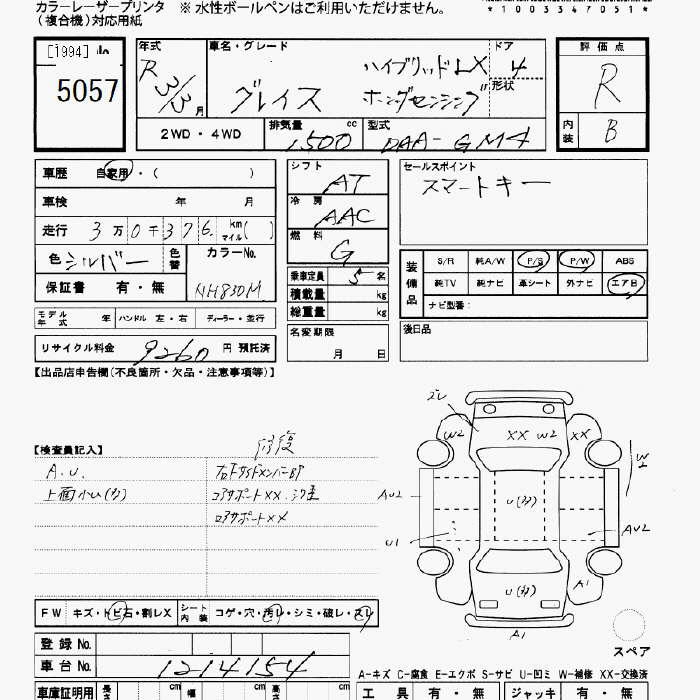 カラーレーザープリンタ ※ 水性ボールペンはご利用いただけません。
(複合機)対応用紙
*1003347051*
[1994]
5057
年式 R 3/3月
車名・グレード グレイス ハイブリッドLX ホンダセンシング
ドア 4
形状
2WD・4WD
排気量 1500 cc
型式 DAA-GM4
評価点 R
内装 B
車歴 自家用・( )
車検 年 月
走行 3万0千376 km マイル( )
色 シルバー 色替 カラーNo. NH830M
保証書 有・無
モデル年式 年 ハンドル 左・右 ディーラー・並行
リサイクル料金 9260 円 預託済
シフト AT
冷房 AAC
燃料 G
乗車定員 5 名
積載量 kg
総重量 kg
名変期限 月 日
セールスポイント
スマートキー
装備品 S/R 純A/W P/S P/W ABS
純TV 純ナビ 革シート 外ナビ エアB
ナビ型番:
後日品
【出品店申告欄(不良箇所・欠品・注意事項等)】
【検査員記入】 修復
A.U. 右Fサイドメンバー
上面小U(カ) コアサポートXX
ロアサポートXX
ズレ
W2 XX W2 XX
W2
AU2 U(カ) AU2
U1
U(カ) A1
A1
スペア
FW キズ・トビ石・割レX シート内装 コゲ・穴・汚レ・シミ・破レ・スレ
登録No.
車台No. 1214154
A-キズ C-腐食 E-エクボ S-サビ U-凹ミ W-補修 XX-交換済
車庫証明用 長さ cm 幅 cm 高さ cm
工具 有・無 ジャッキ 有・無